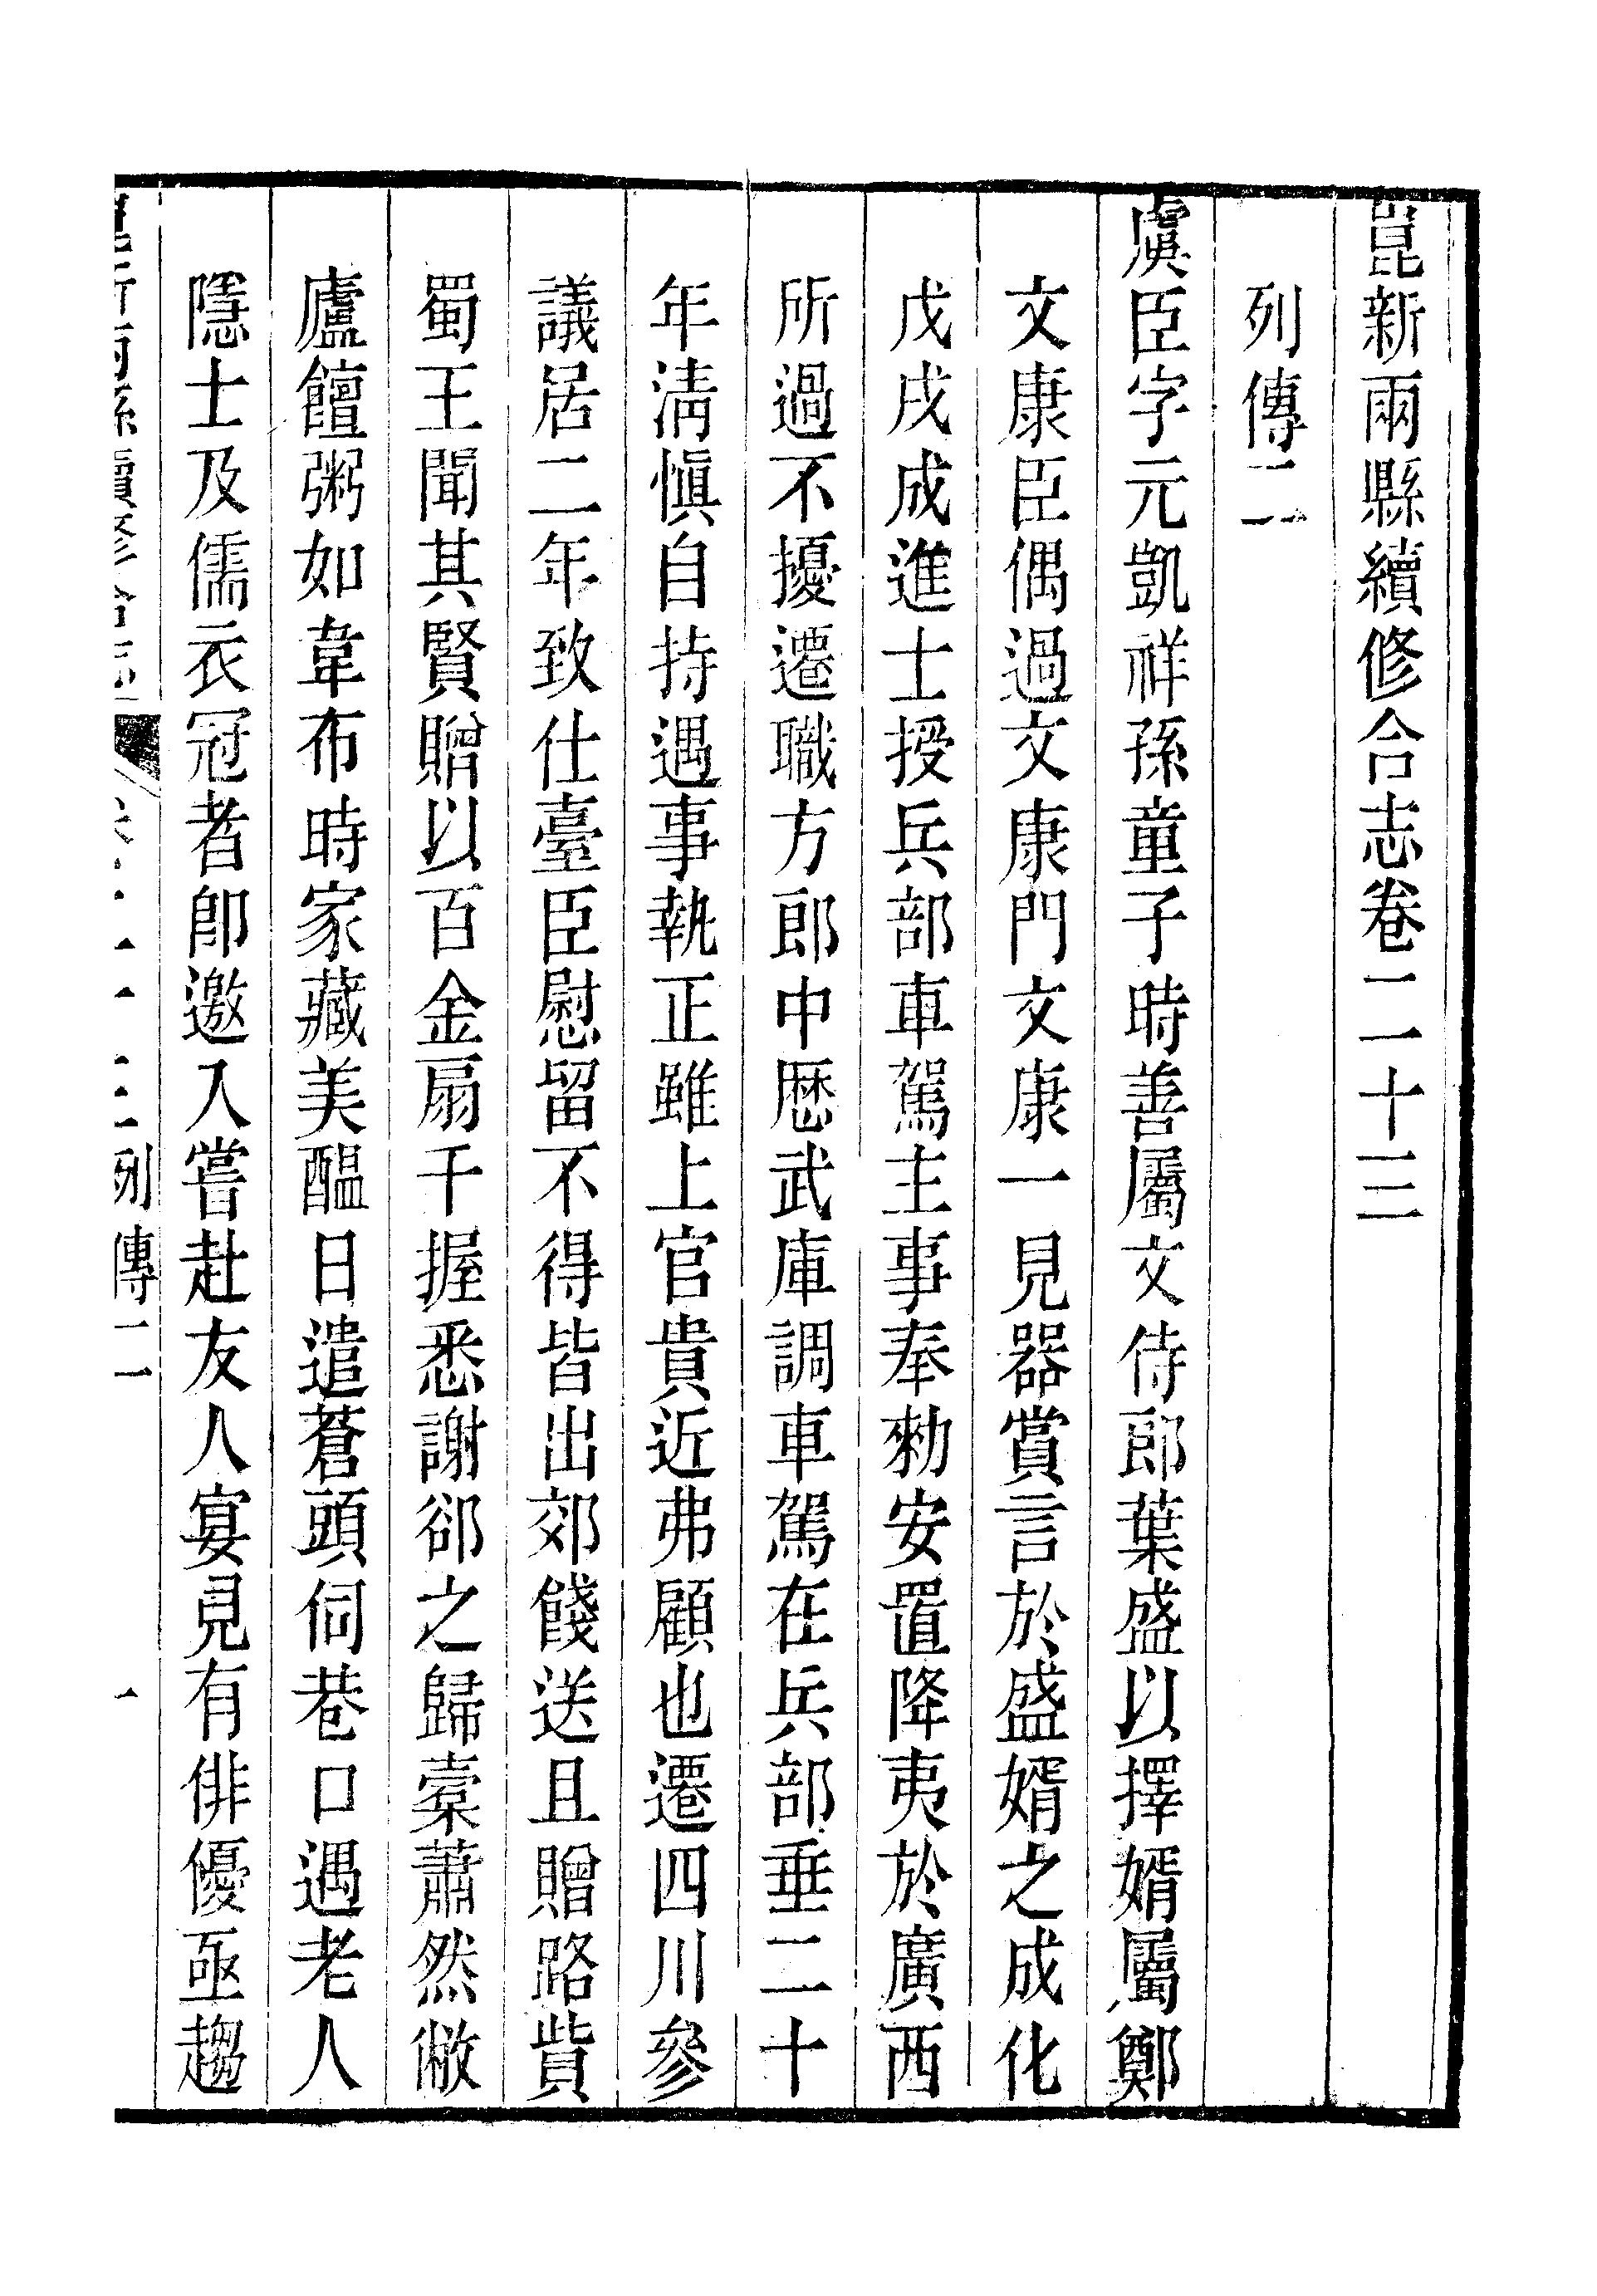 崑新兩縣續修合志卷二十三
列傳二
虞臣字元凱祥孫童子時善屬文侍郎葉盛以擇婿屬鄭
文康臣偶過文康門文康一見器賞言於盛婿之成化
戊戌成進士授兵部車駕主事奉勑安置降夷於廣西
所過不擾遷職方郎中歷武庫調車駕在兵部垂二十
年淸愼自持遇事執正雖上官貴近弗顧也遷四川參
議居二年致仕臺臣慰留不得皆出郊餞送且贈路貲
蜀王聞其賢贈以百金扇千握悉謝卻之歸橐蕭然敝
廬饘粥如韋布時家藏美醞日遣蒼頭伺巷口遇老人
隱士及儒衣冠者卽邀入嘗赴友人宴見有俳優亟趨
崑新兩縣續修合志 卷二十三列傳二 一